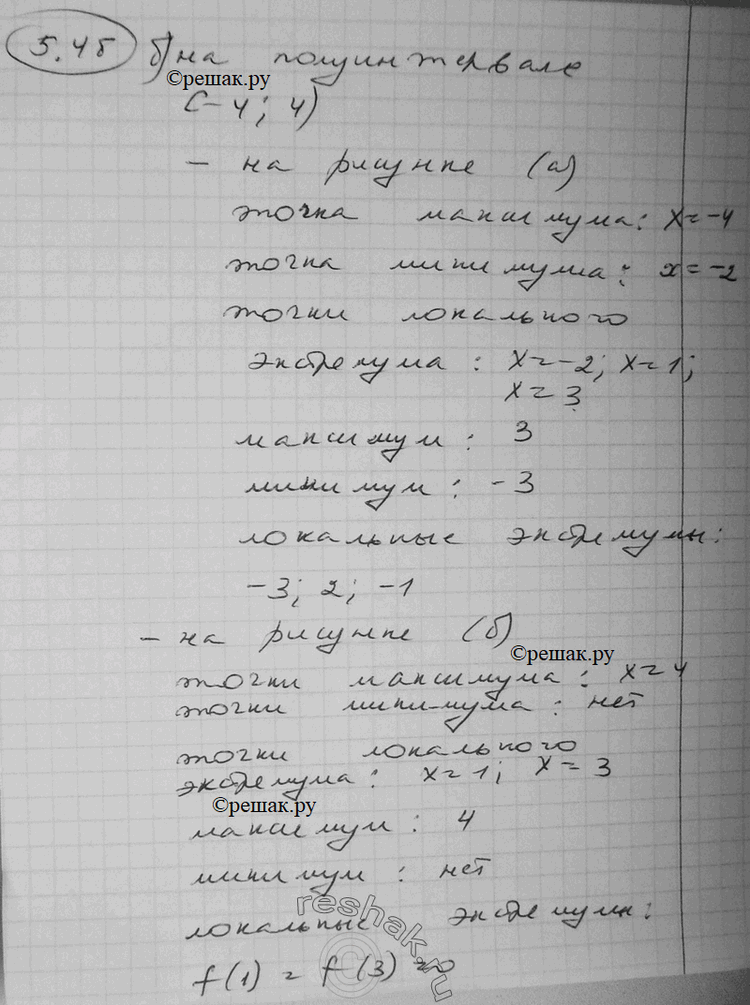 5.4б б) на полуинтервале
©решак.ру
[-4; 4)
- на рисунке (а)
точка максимума: x=-4
точка минимума: x=-2
точки локального
экстремума: x=-2; x=1;
x=3
максимум: 3
минимум: -3
локальные экстремумы:
-3; 2; -1
- на рисунке (б)
©решак.ру
точки максимума: x=4
точки мини-мума: нет
точки локального
экстремума: x=1; x=3
©решак.ру
максимум: 4
минимум: нет
reshak.ru
локальные экстремумы:
f(1) = f(3) =